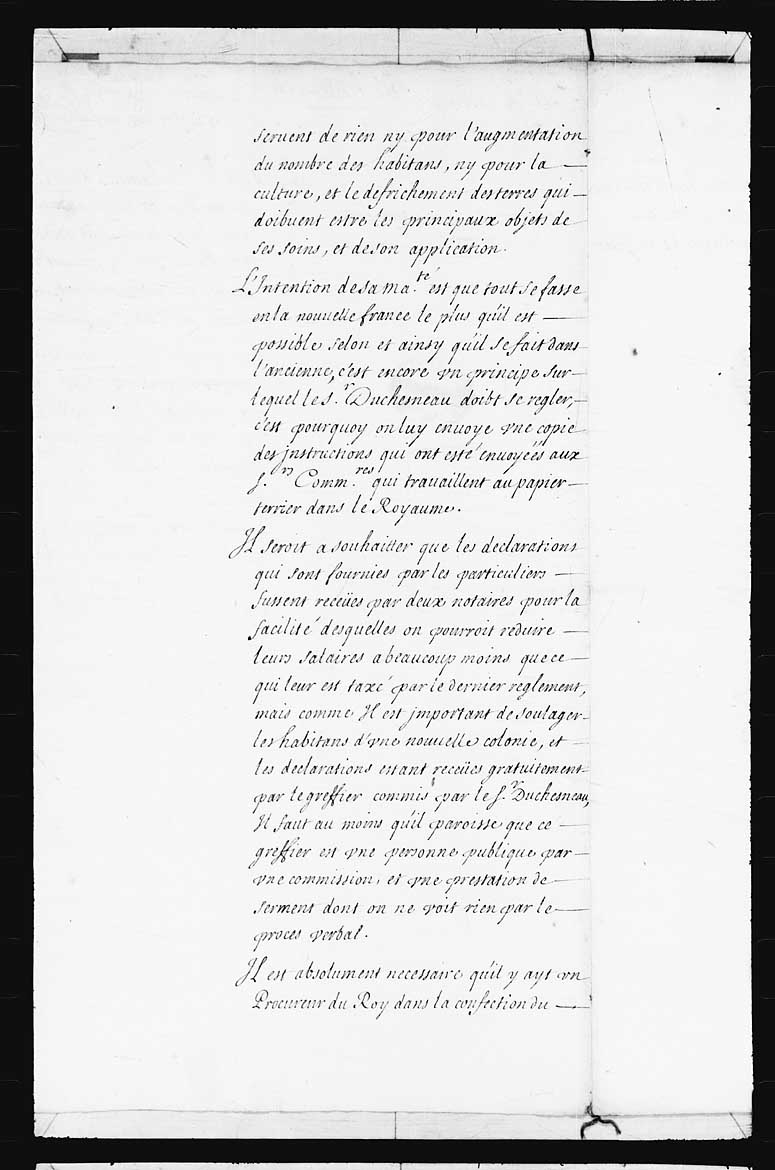 seruent de rien ny pour l'augmentation
du nombre des habitans, ny pour la
culture, et le defrichement des terres qui
doibuent estre les principaux objets de
ses soins, et de son application.
L'Intention de sa Ma.té est que tout se fasse
en la nouuelle france le plus qu'il est
possible selon et ainsy qu'il se fait dans
l'ancienne, c'est encore vn principe sur
lequel le S.r Duchesneau doibt se regler,
c'est pourquoy on luy enuoye vne copie
des jnstructions qui ont esté enuoyéés aux
S.rs Comm.res qui trauaillent au papier
terrier dans le Royaume.
Il seroit a souhaitter que les declarations
qui sont fournies par les particuliers
fussent receües par deux notaires pour la
facilité desquelles on pourroit reduire
leurs salaires a beaucoup moins que ce
qui leur est taxé par le dernier reglement,
mais comme Il est jmportant de soulager
les habitans d'vne nouuelle colonie, et
les declarations estant receües gratuitement
par le greffier commis par le S.r Duchesneau,
Il faut au moins qu'il paroisse que ce
greffier est vne personne publique par
vne commission, et vne prestation de
serment dont on ne voit rien par le
proces verbal.
Il est absolument necessaire qu'il y ayt vn
Procureur du Roy dans la confection du